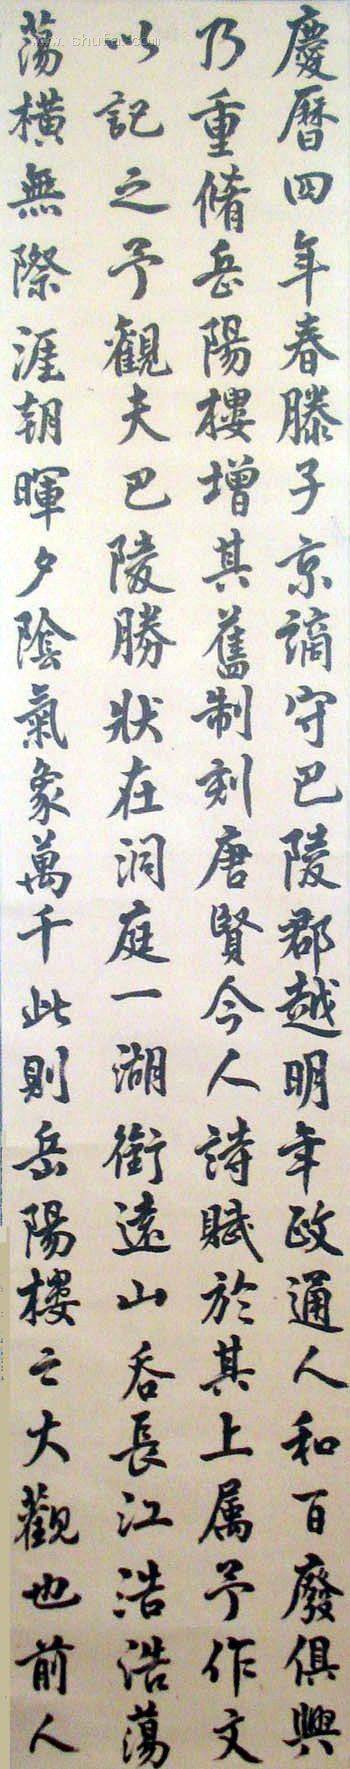 慶曆四年春滕子京謫守巴陵郡越明年政通人和百廢俱興
乃重脩岳陽樓增其舊制刻唐賢今人詩賦於其上属予作文
以記之予觀夫巴陵勝狀在洞庭一湖銜遠山吞長江浩浩蕩
蕩橫無際涯朝暉夕陰氣象萬千此則岳陽樓之大觀也前人